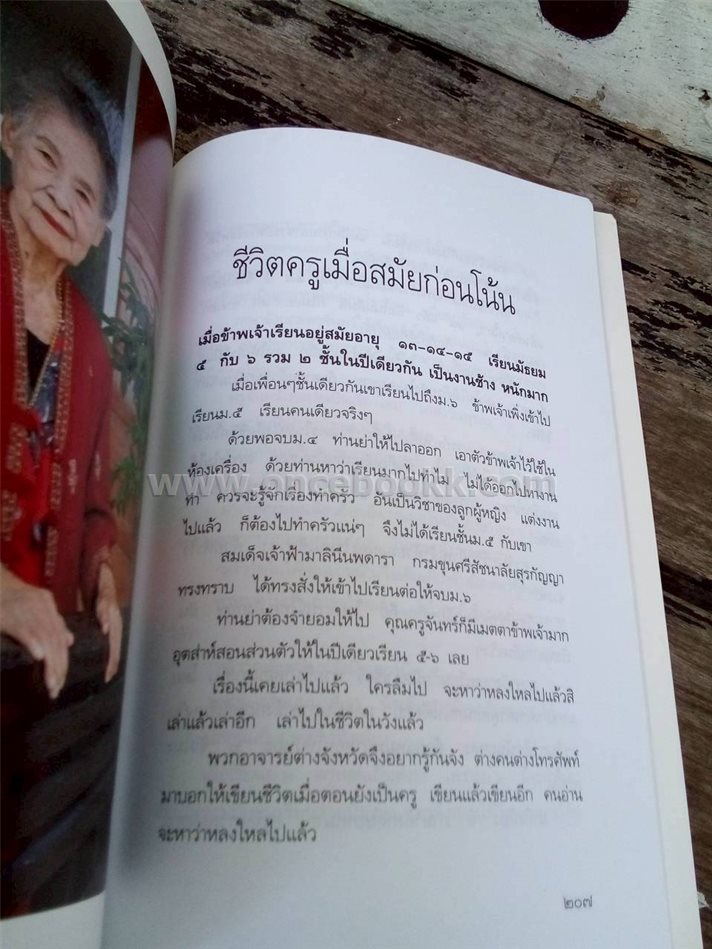 ชีวิตครูเมื่อสมัยก่อนโน้น
เมื่อข้าพเจ้าเรียนอยู่สมัยอายุ ๑๓-๑๔-๑๕ เรียนมัธยม
๕ กับ ๖ รวม ๒ ชั้นในปีเดียวกัน เป็นงานช้าง หนักมาก
เมื่อเพื่อนๆชั้นเดียวกันเขาเรียนไปถึงม.๖ ข้าพเจ้าเพิ่งเข้าไป
เรียนม.๕ เรียนคนเดียวจริงๆ
ด้วยพอจบม.๔ ท่านย่าให้ไปลาออก เอาตัวข้าพเจ้าไว้ใช้ใน
ห้องเครื่อง ด้วยท่านหาว่าเรียนมากไปทำไม ไม่ได้ออกไปทำงาน
www.oncebookk.com
ทำ ควรจะรู้จักเรื่องทำครัว อันเป็นวิชาของลูกผู้หญิง แต่งงาน
ไปแล้ว ก็ต้องไปทำครัวแน่ๆ จึงไม่ได้เรียนชั้นม.๕ กับเขา
สมเด็จเจ้าฟ้ามาลินีนพดารา กรมขุนศรีสัชนาลัยสุรกัญญา
ทรงทราบ ได้ทรงสั่งให้เข้าไปเรียนต่อให้จบม.๖
ท่านย่าต้องจำยอมให้ไป คุณครูจันทร์ก็มีเมตตาข้าพเจ้ามาก
อุตส่าห์สอนส่วนตัวให้ในปีเดียวเรียน ๕-๖ เลย
เรื่องนี้เคยเล่าไปแล้ว ใครลืมไป จะหาว่าหลงใหลไปแล้วสิ
เล่าแล้วเล่าอีก เล่าไปในชีวิตในวังแล้ว
พวกอาจารย์ต่างจังหวัดจึงอยากรู้กันจัง ต่างคนต่างโทรศัพท์
มาบอกให้เขียนชีวิตเมื่อตอนยังเป็นครู เขียนแล้วเขียนอีก คนอ่าน
จะหาว่าหลงใหลไปแล้ว
๒๐๗